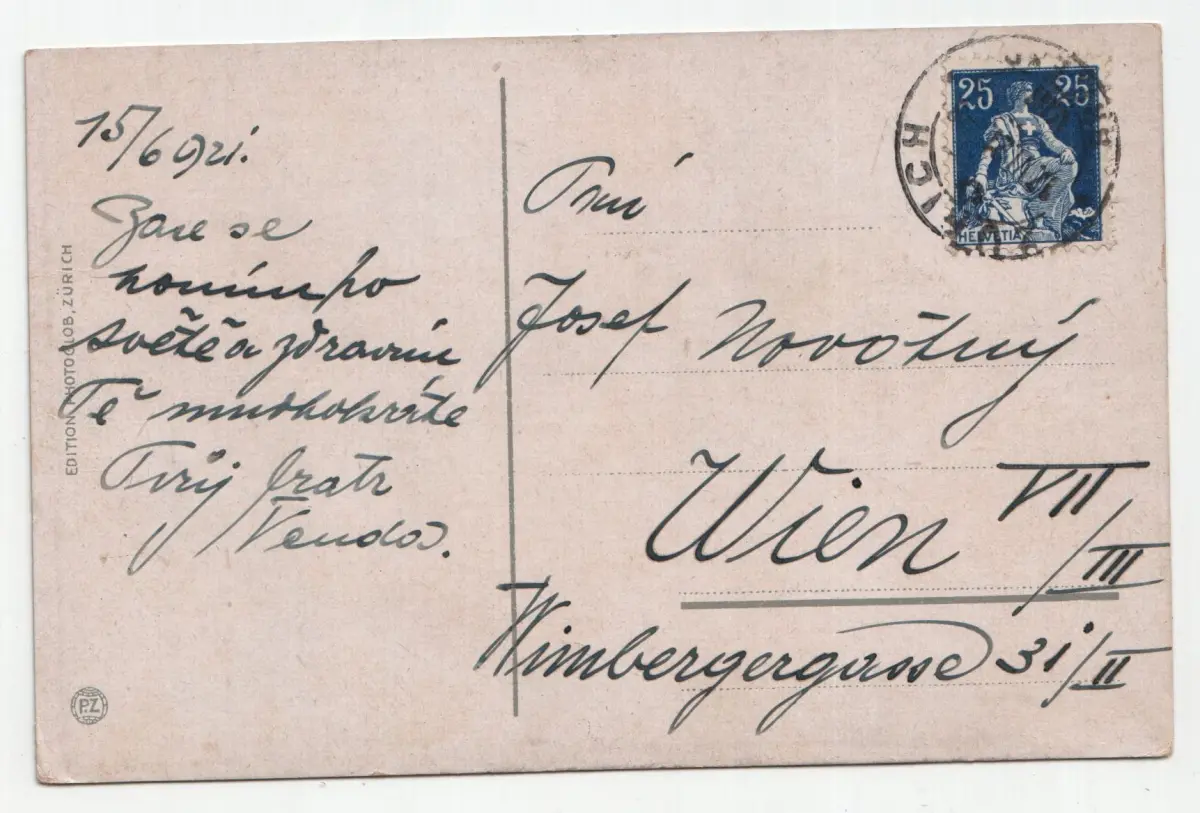 15/6 921.
Zase se
honím po
světě a zdravím
Tě mnohokráte
Tvůj bratr
Venda.
EDITION PHOTOGLOB, ZÜRICH
P.Z
25 25
HELVETIA
Josef Novotný
Wien VII
/III
Wimbergergasse 31/II